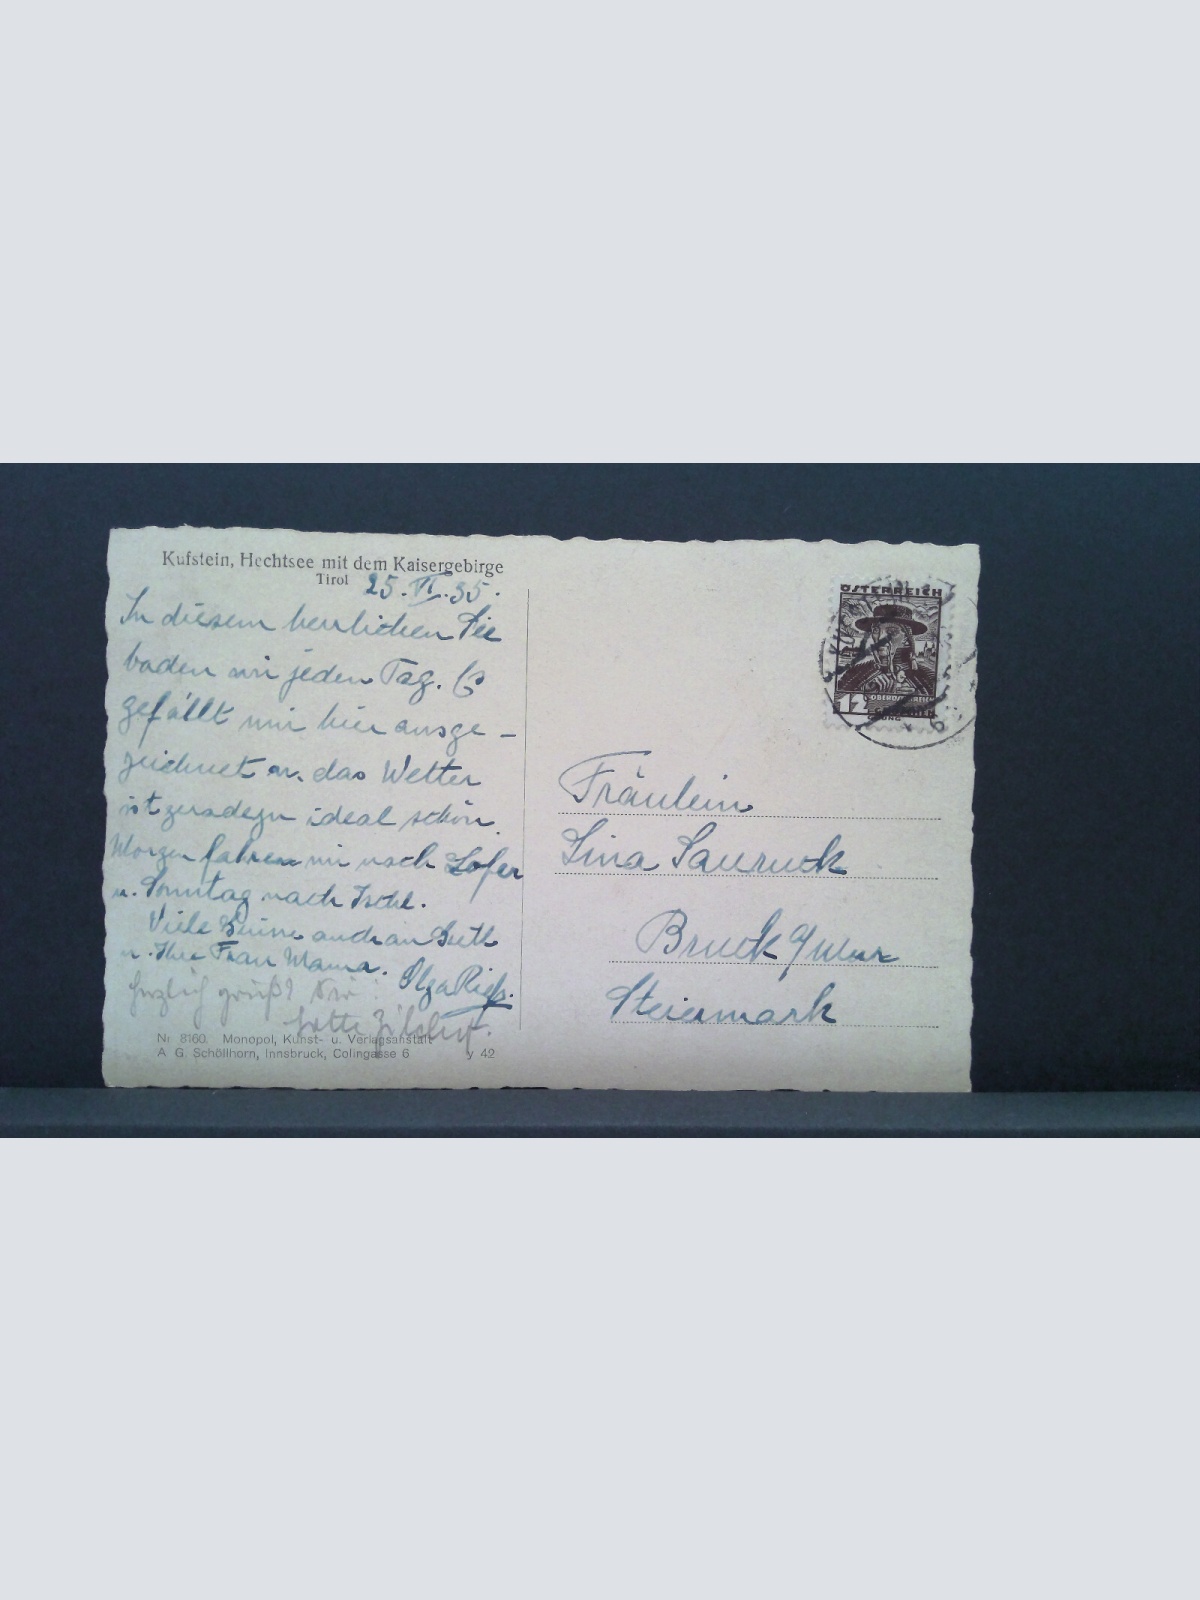 Kufstein, Hechtsee mit dem Kaisergebirge
Tirol
25.VI.35.
In diesem herrlichen See
baden wir jeden Tag. Es
gefällt mir hier ausge-
zeichnet u. das Wetter
ist geradezu ideal schön.
Morgen fahren wir nach Lofer
u. Sonntag nach Ischl.
Viele Grüsse auch an
u. Ihre Frau Mama. Olga
Herzlich grüßt Sie
Lotte
Nr 8160. Monopol, Kunst- u. Verlagsanstalt
A G. Schöllhorn, Innsbruck, Colingasse 6 y 42
ÖSTERREICH
12
OBERÖSTERREICH
GROSCHEN
Fräulein
Lina Sauruck
Bruck a/Mur
Steiermark